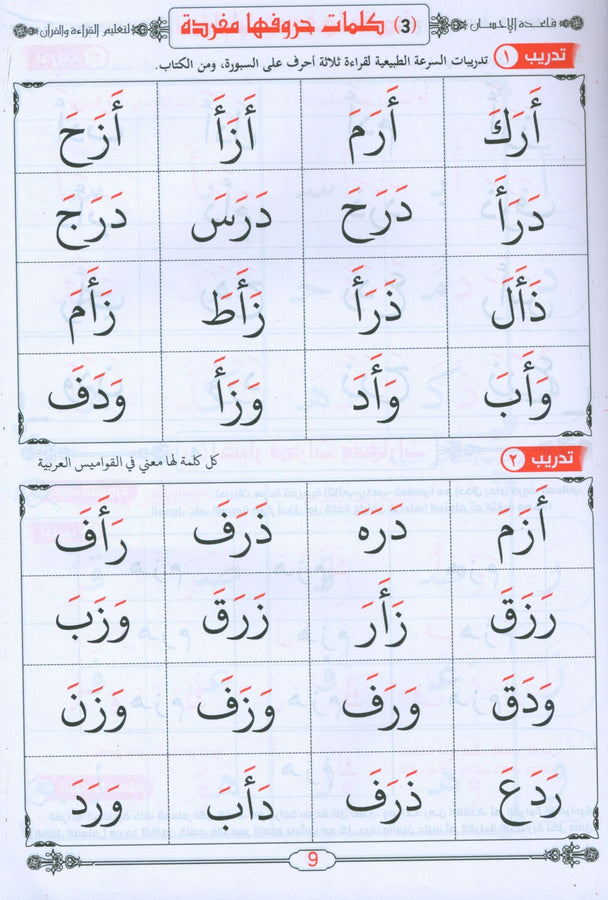 قاعدة الإحسان (3) كلمات حروفها مفردة لتعليم القراءة والقرآن
تدريب ١ تدريبات السرعة الطبيعية لقراءة ثلاثة أحرف على السبورة، ومن الكتاب.
أَرَكَ أَرَمَ أَزَأَ أَزَحَ
دَرَأَ دَرَحَ دَرَسَ دَرَجَ
ذَأَلَ ذَرَأَ زَأَطَ زَأَمَ
وَأَبَ وَأَدَ وَزَأَ وَدَفَ
تدريب ٢ كل كلمة لها معني في القواميس العربية
أَزَمَ دَرَهَ ذَرَفَ رَأَفَ
رَزَقَ زَأَرَ زَرَقَ وَزَبَ
وَدَقَ وَرَفَ وَزَفَ وَزَنَ
رَدَعَ ذَرَفَ دَأَبَ وَرَدَ
9